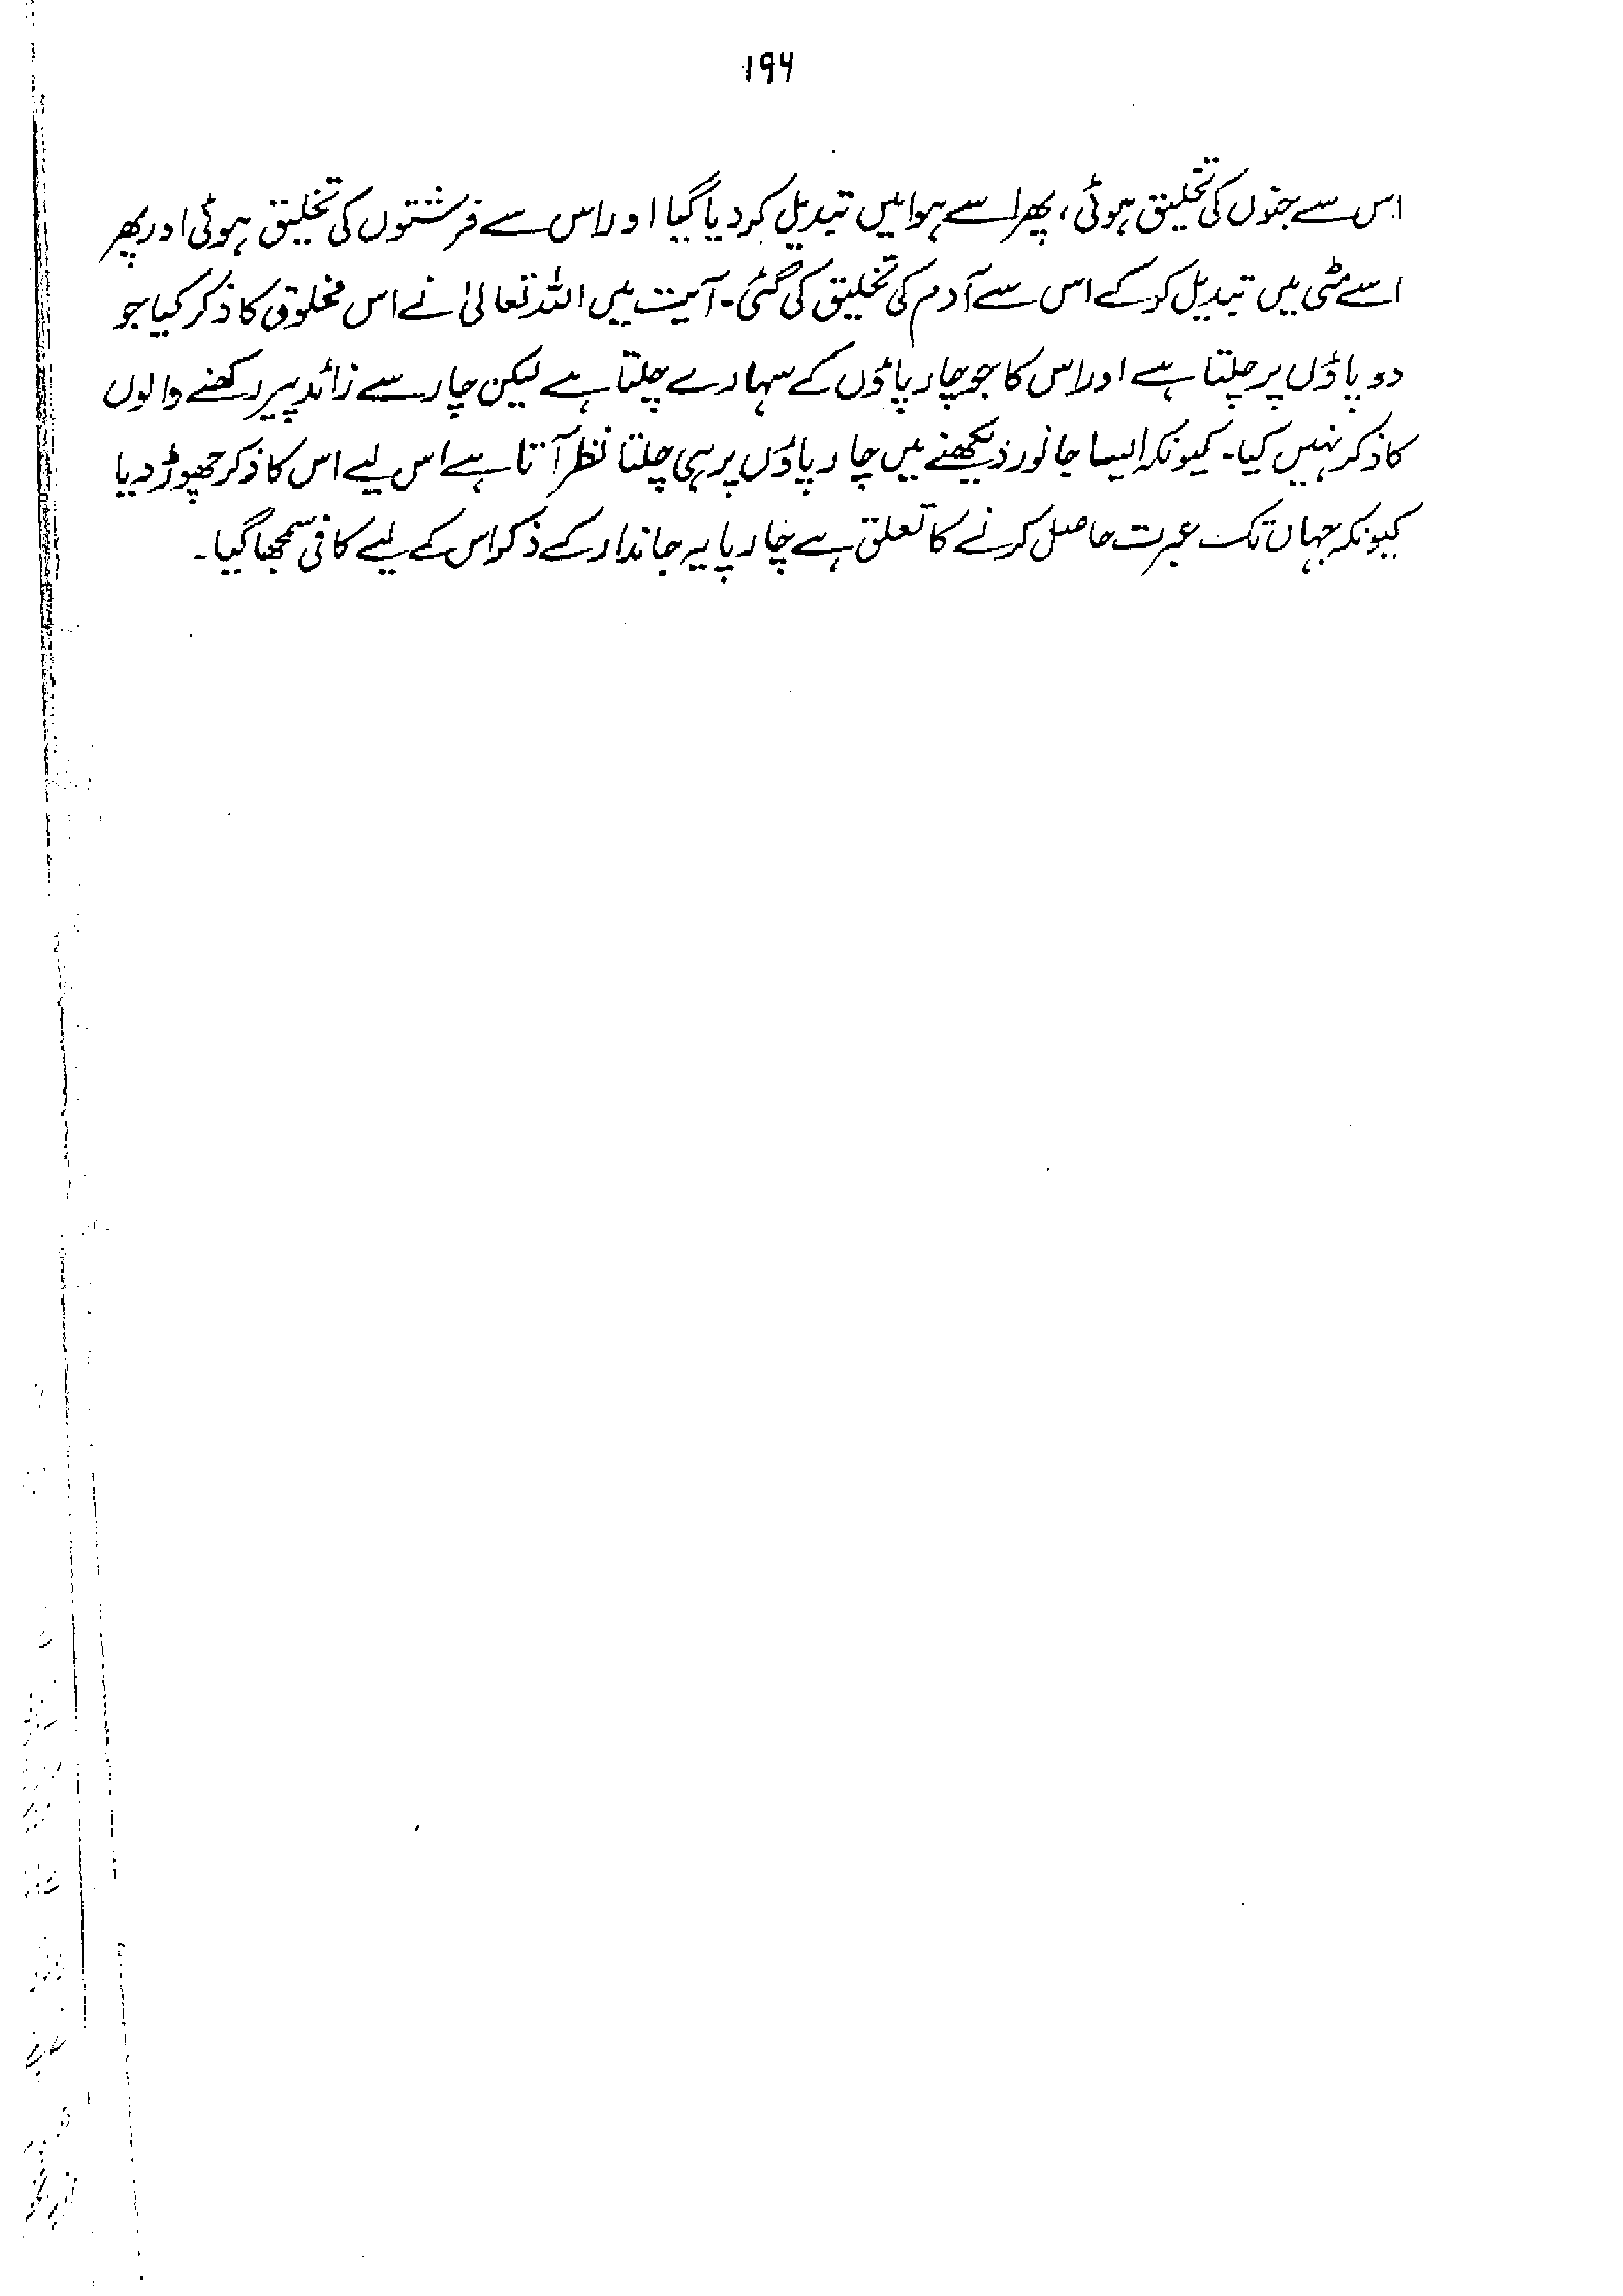 ۱۹۶
اس سے جنوں کی تخلیق ہوئی، پھر اسے ہوا میں تبدیل کردیا گیا اور اس سے فرشتوں کی تخلیق ہوئی اور پھر
اسے مٹی میں تبدیل کرکے اس سے آدم کی تخلیق کی گئی۔ آیت میں اللہ تعالیٰ نے اس مخلوق کا ذکر کیا جو
دو پاؤں پر چلتا ہے اور اس کا جو چار پاؤں کے سہارے چلتا ہے لیکن چار سے زائد پیر رکھنے والوں
کا ذکر نہیں کیا۔ کیونکہ ایسا جانور دیکھنے میں چار پاؤں پر ہی چلتا نظر آتا ہے اس لیے اس کا ذکر چھوڑ دیا
کیونکہ جہاں تک عبرت حاصل کرنے کا تعلق ہے چار پایہ جاندار کے ذکر اس کے لیے کافی سمجھا گیا۔